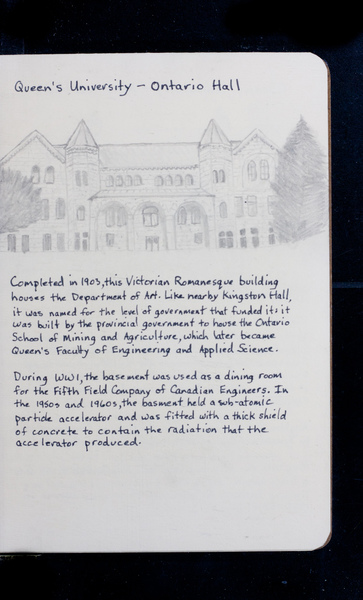 Queen's University - Ontario Hall
Completed in 1903, this Victorian Romanesque building
houses the Department of Art. Like nearby Kingston Hall,
it was named for the level of government that funded it; it
was built by the provincial government to house the Ontario
School of Mining and Agriculture, which later became
Queen's Faculty of Engineering and Applied Science.
During WW1, the basement was used as a dining room
for the Fifth Field Company of Canadian Engineers. In
the 1950s and 1960s, the basment held a sub-atomic
particle accelerator and was fitted with a thick shield
of concrete to contain the radiation that the
accelerator produced.